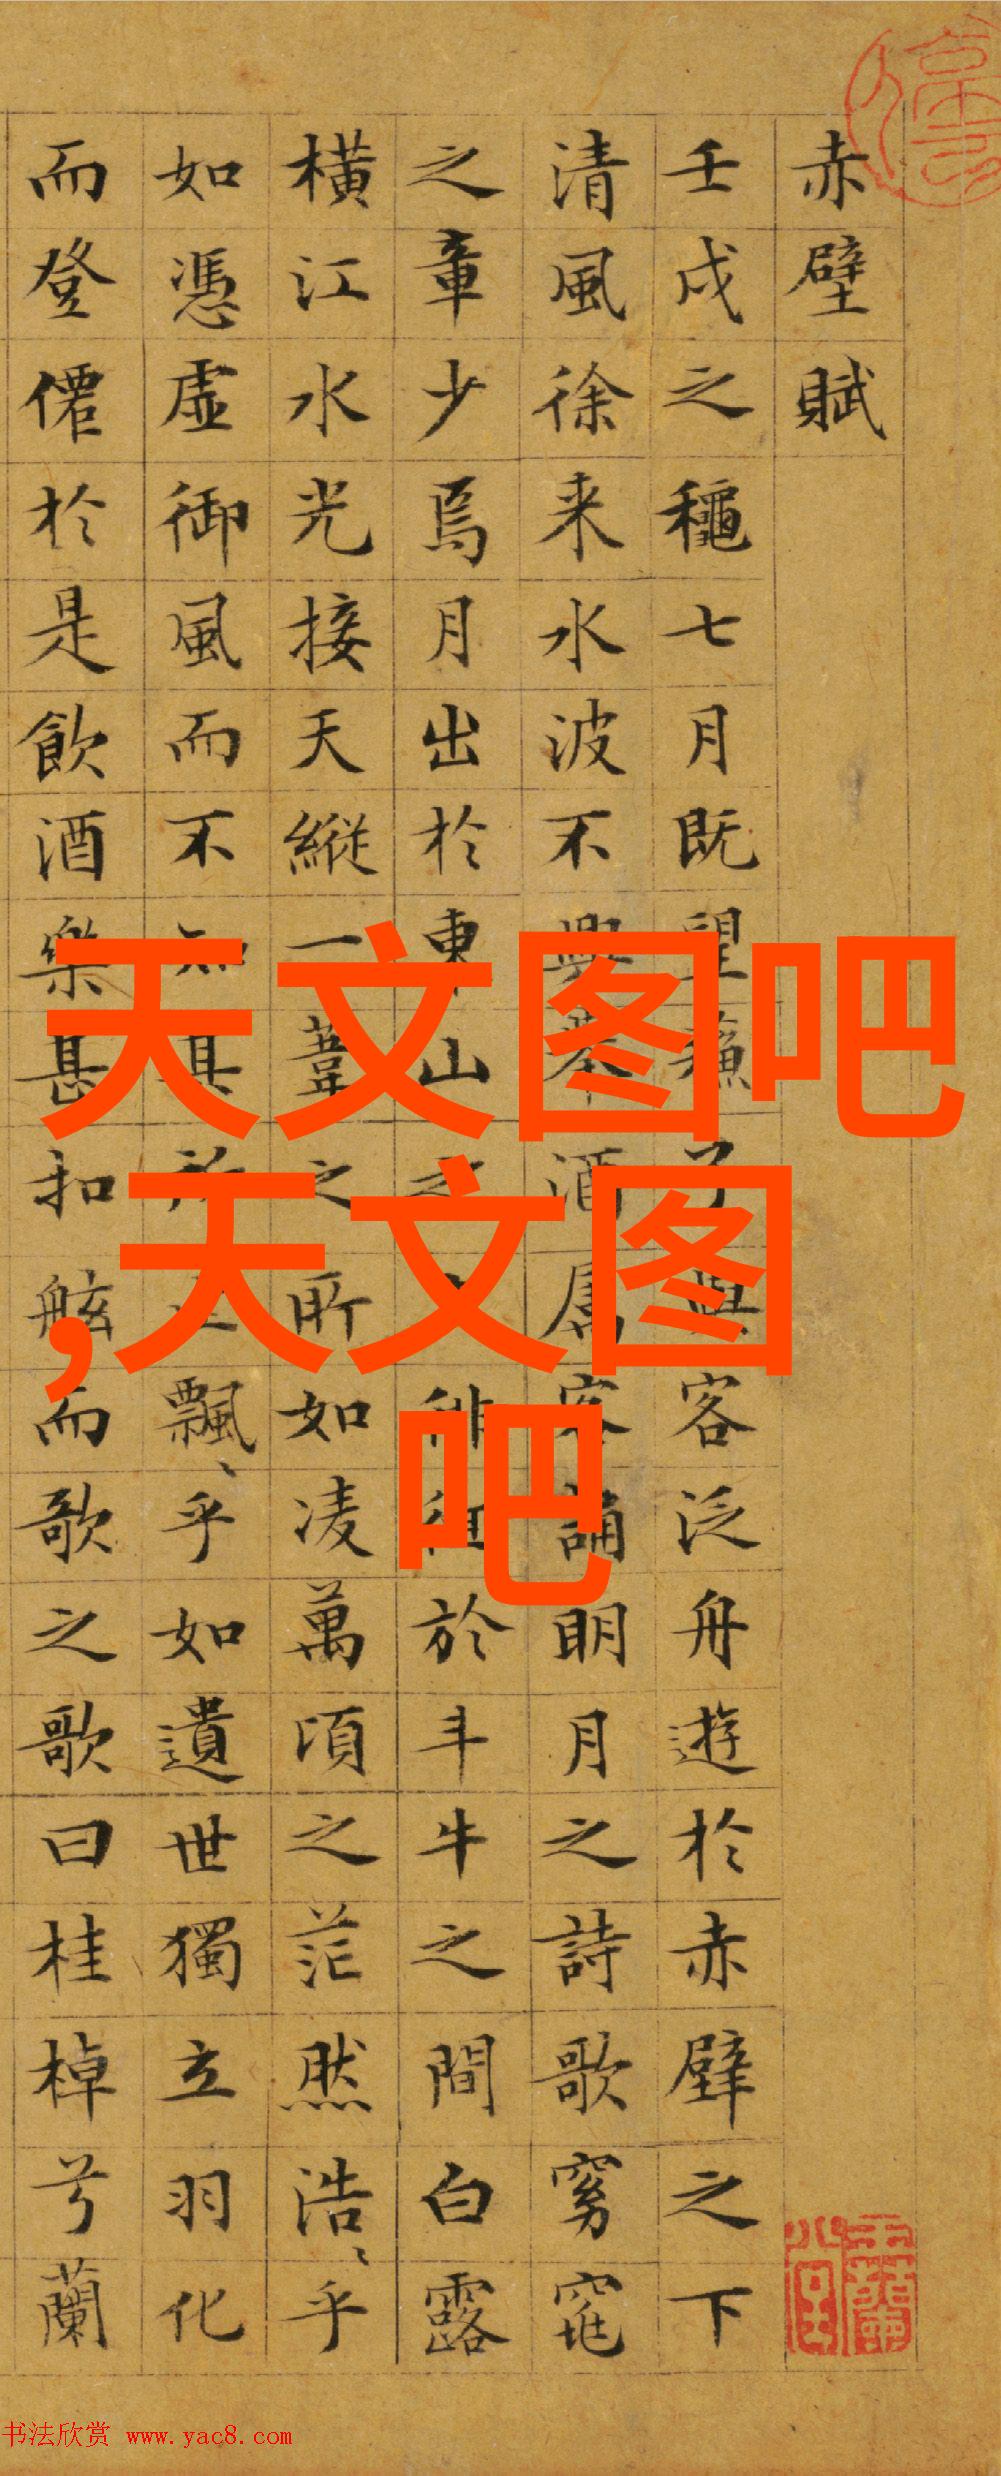 赤壁賦
壬戌之穐七月既望蘓子與客泛舟遊於赤壁之下
清風徐来水波不興舉酒属客誦明月之詩歌窈窕
之章少焉月出於東山之上徘徊於斗牛之間白露
橫江水光接天縱一葦之所如凌萬頃之茫然浩〻乎
如憑虛御風而不知其所止飄〻乎如遺世獨立羽化
而登僊於是飲酒樂甚扣舷而歌之歌曰桂棹兮蘭
天文图吧
,天文图
吧
书法欣赏 www.yac8.com